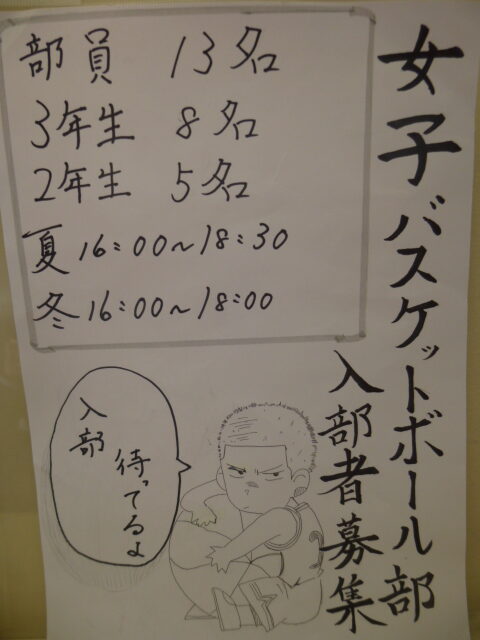 女子バスケットボール部
入部者募集
部員 13名
3年生 8名
2年生 5名
夏 16:00~18:30
冬 16:00~18:00
入部
待ってるよ
3